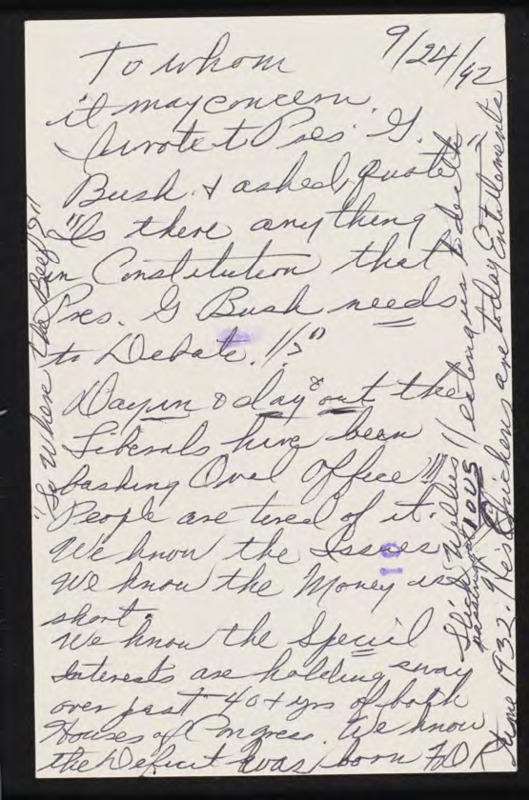 9/24/92
To whom
it may concern.
I wrote t Pres. G.
Bush. & asked, quote
"Is there anything
in Constitution that
Pres. G Bush needs
to Debate.!!?"
Day in & day out the
Liberals have been
bashing Oval Office!!!
People are tired of it.
We know the Issues
We know the Money is
short.
We know the Special
Interests are holding sway
over past 40+yrs of both
Houses of Congress. We know
the Deficit was born FDR
June 1932. His Chickens are today Entitlements
Slick Willies!! eating us to death"
IOUS
"So Where the Beef?!!"
10